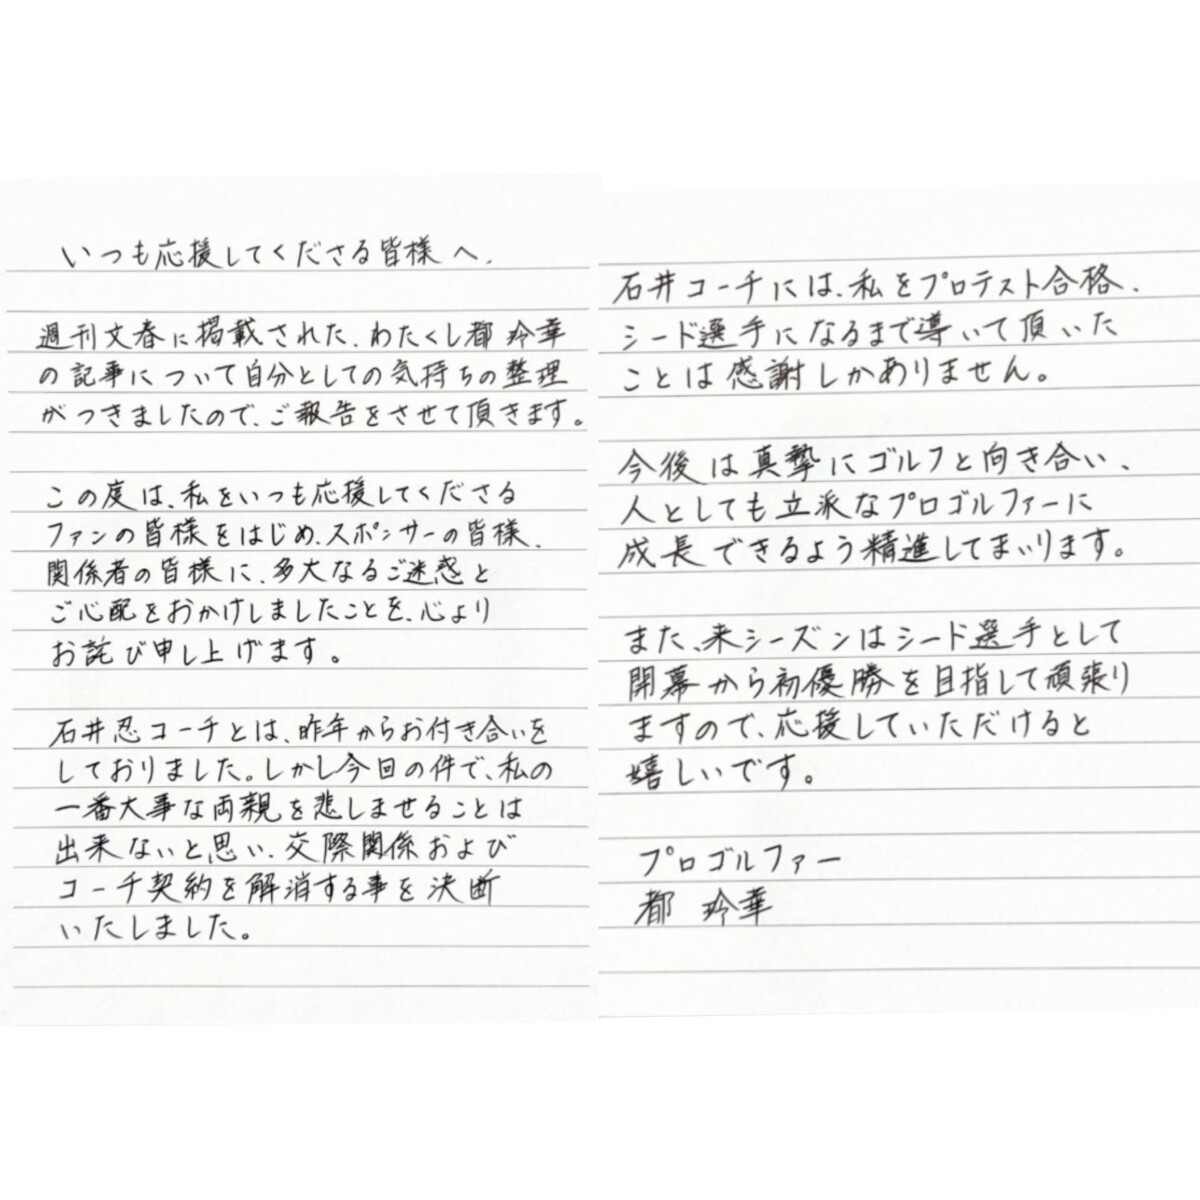 いつも応援してくださる皆様へ.
週刊文春に掲載された、わたくし都 玲華
の記事について自分としての気持ちの整理
がつきましたので、ご報告をさせて頂きます。
この度は、私をいつも応援してくださる
ファンの皆様をはじめ、スポンサーの皆様、
関係者の皆様に、多大なるご迷惑と
ご心配をおかけしましたことを、心より
お詫び申し上げます。
石井忍コーチとは、昨年からお付き合いを
しておりました。しかし今回の件で、私の
一番大事な両親を悲しませることは
出来ないと思い、交際関係および
コーチ契約を解消する事を決断
いたしました。
石井コーチには、私をプロテスト合格、
シード選手になるまで導いて頂いた
ことは感謝しかありません。
今後は真摯にゴルフと向き合い、
人としても立派なプロゴルファーに
成長できるよう精進してまいります。
また、来シーズンはシード選手として
開幕から初優勝を目指して頑張り
ますので、応援していただけると
嬉しいです。
プロゴルファー
都 玲華